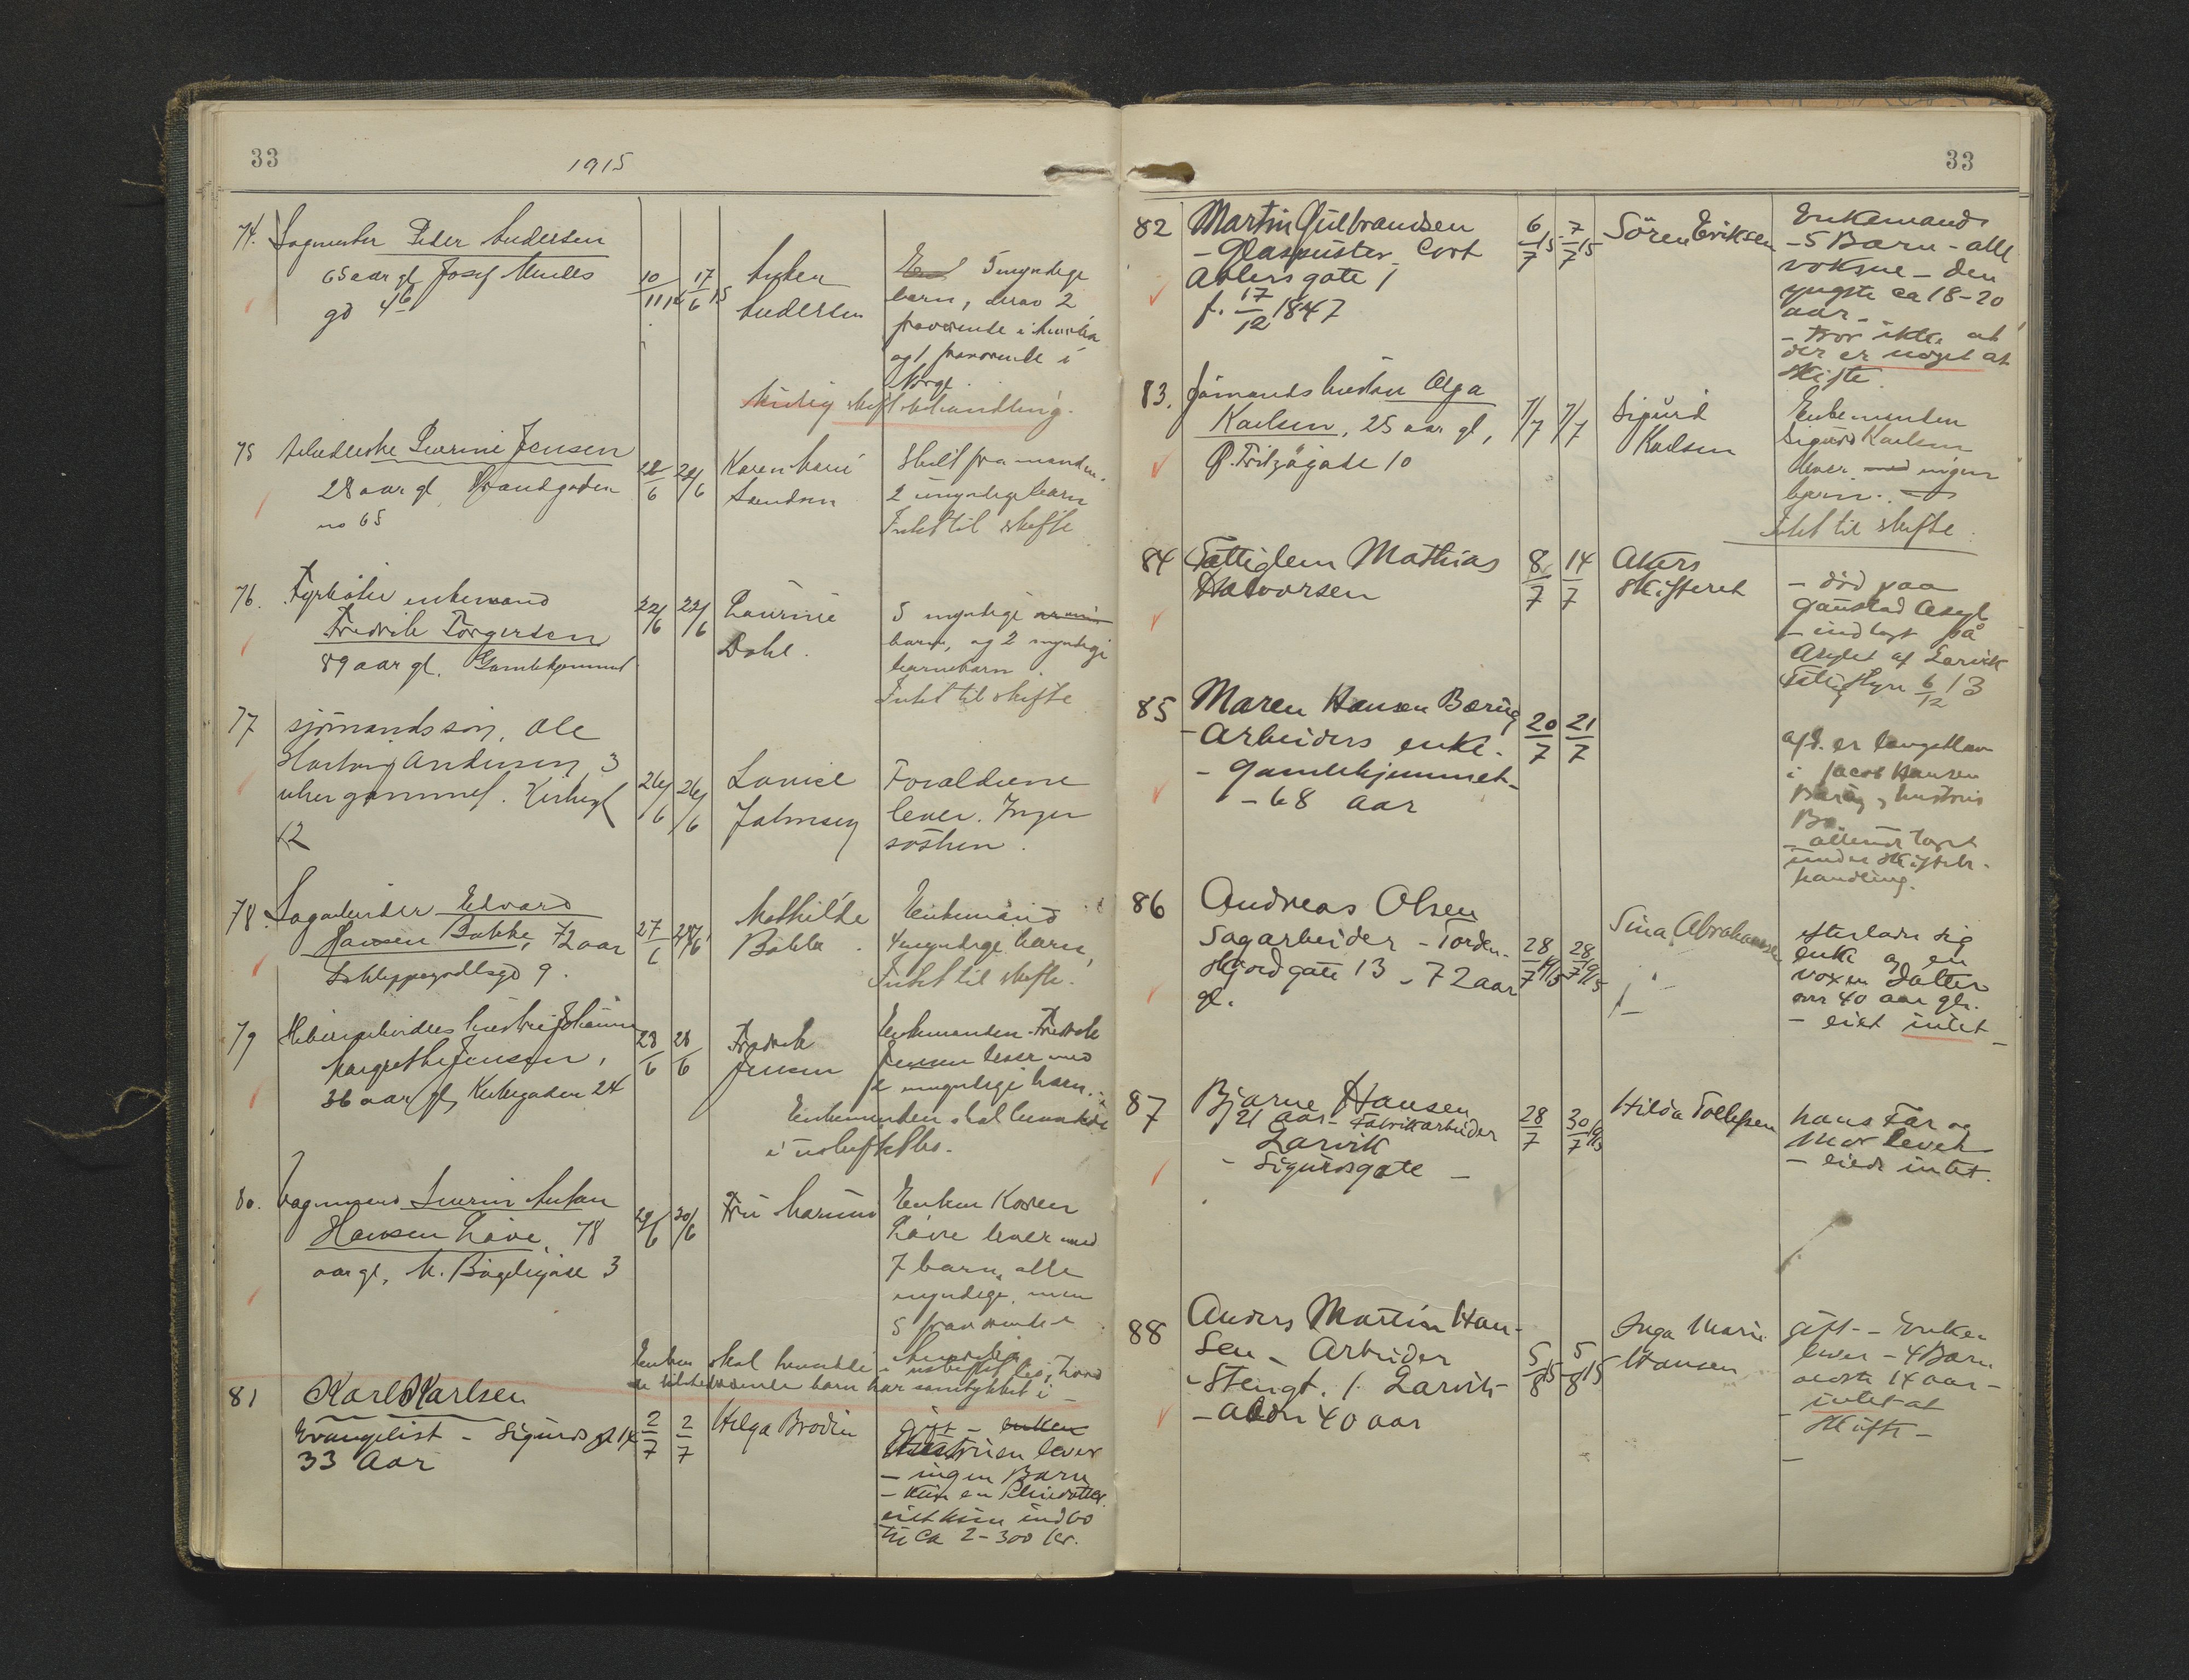 33
1915
74. Sagmester Peder Andersen
65 aar gl Josef
gd 4
10/11 14 17/6 15
Andersen
5 myndige
barn, derav 2
fraværende i Amerika
og 1 fraværende i
Norge.
skiftebehandling.
75 Jensen
28 aar gl, Strandgaden
no 65
22/6 22/6
Karen Marie
Skilt fra manden.
2 umyndige barn
Intet til skifte
76. Fyrbøter enkemand
Fredrik Torgersen
89 aar gl. Gamlehjemmet
22/6 22/6
Laurine
Dahl.
5 myndige
barn, og 2 myndige
barnebarn.
Intet til skifte
77 sjømandssøn, Ole
Hartvig Andersen, 3
uker gammel. Kirkegt
12
26/6 26/6
Lovise
Forældrene
lever. Ingen
søsken.
78. Sagarbeider Edvard
Hansen Bakke, 72 aar
9.
27/6 28/6
Mathilde
Bakke.
Enkemand
4 myndige barn,
Intet til skifte.
79 hustru Johanne
Margrethe Jensen,
36 aar gl, Kirkegaden 24
28/6 28/6
Fredrik
Jensen
Enkemanden Fredrik
Jensen lever med
2 umyndige barn.
Enkemanden skal hensidde
i uskiftet bo.
80. Vognmand Severin Anton
Hansen Løve, 78
aar gl, 3
29/6 30/6
Fru
Enken Karen
Løve lever med
7 barn, alle
myndige, men
5 fraværende i
Amerika
Enken skal hensidde i uskiftet bo, hvori
de tilstedeværende barn har samtykket i
81 Karl Karlsen
Evangelist - Sigurds gt 14
33 Aar
2/7 2/7
Helga Brodin
Gift - enken
Hustruen lever
- ingen Barn
- kun en Pleiedatter.
eiet kun indbo
til ca 2-300 kr.
33
82 Martin Gulbrandsen
- Glaspuster Cort
Adlersgate 1
f. 17/12 1847
6/7 15 7/7 15
Sören Eriksen
Enkemand
- 5 Barn - alle
voksne - den
yngste ca 18-20
aar -
- tror ikke at
der er noget at
skifte.
83. Sömandshustru Olga
Karlsen, 25 aar gl,
Ø. Fritzøgate 10
7/7 7/7
Sigurd
Karlsen
Enkemanden
Sigurd Karlsen
lever med ingen
barn.
Intet til skifte.
84 Fattiglem Mathias
Halvorsen
8/7 14/7
Akers
Skifteret
- död paa
Gaustad Asyl
- indlagt på
Asylet af Larvik
Fattigstyre 6/12 13
85 Maren Hansen Bæring
- Arbeiders enke.
- Gamlehjemmet -
- 68 aar
20/7 21/7
afd. er længstlev
i Jacob Hansen
Bæring & hustrus
Bo.
- allerede taget
under skiftebe-
handling.
86 Andreas Olsen
Sagarbeider - Torden-
skjoldgate 13 - 72 aar
gl.
28/7 15 28/7 15
Sina Abrahamsen
efterlader sig
enke og en
voxen datter
over 40 aar gl.
- eiet intet -
87 Bjarne Hansen
21 aar - Fabrikarbeider
Larvik
- Sigurdsgate -
28/7 30/7 15
Hilda Tollefsen
hans Far og
Mor lever
- eiede intet.
88 Anders Martin Han-
sen - Arbeider
- Stengt. 1. Larvik
- Alder 40 aar
5/8 15 5/8 15
Inga Marie
Hansen
gift - Enken
lever - 4 Barn
ældste 14 aar -
- intet at
skifte -